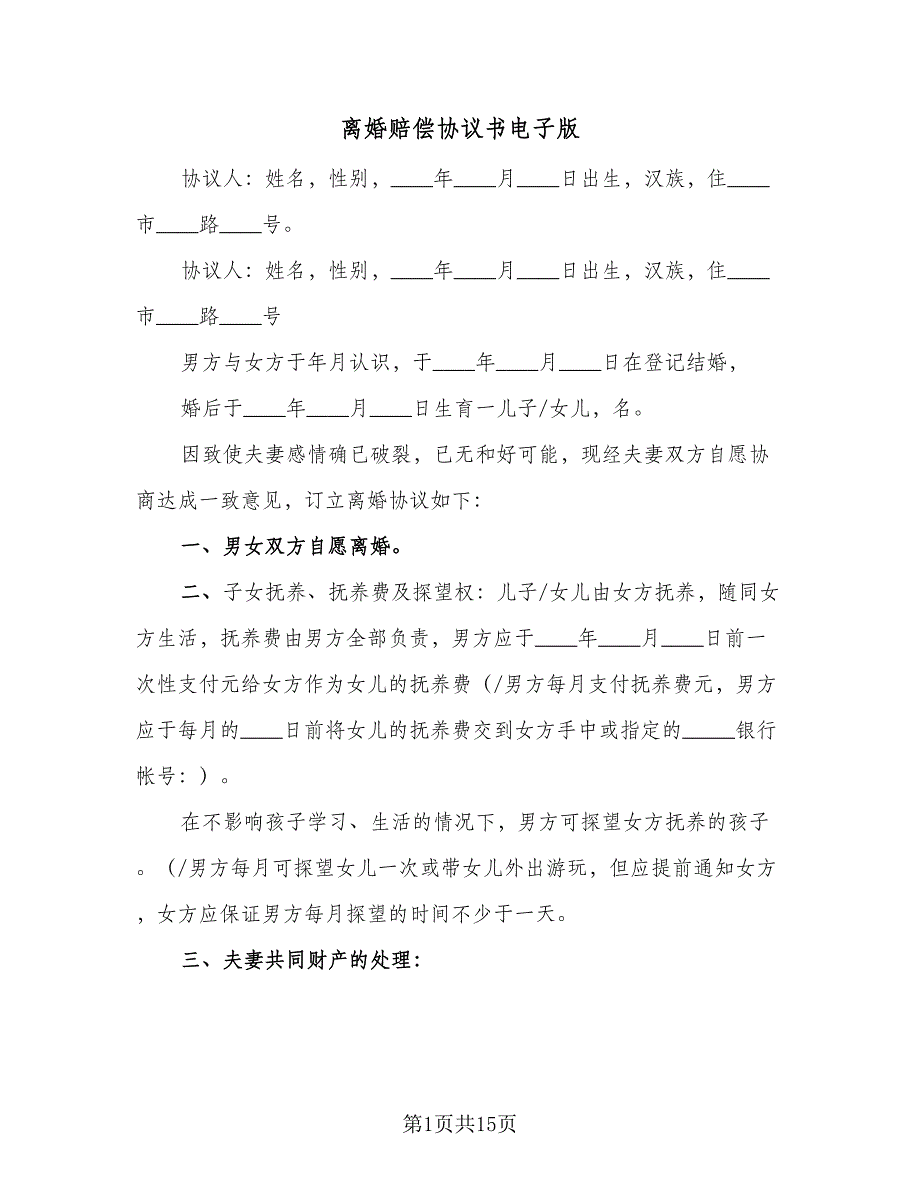 离婚赔偿协议书电子版
协议人：姓名，性别，____年____月____日出生，汉族，住____
市____路____号。
协议人：姓名，性别，____年____月____日出生，汉族，住____
市____路____号
男方与女方于年月认识，于____年____月____日在登记结婚，
婚后于____年____月____日生育一儿子/女儿，名。
因致使夫妻感情确已破裂，已无和好可能，现经夫妻双方自愿协
商达成一致意见，订立离婚协议如下：
一、男女双方自愿离婚。
二、子女抚养、抚养费及探望权：儿子/女儿由女方抚养，随同女
方生活，抚养费由男方全部负责，男方应于____年____月____日前一
次性支付元给女方作为女儿的抚养费（/男方每月支付抚养费元，男方
应于每月的____日前将女儿的抚养费交到女方手中或指定的_____银行
帐号：）。
在不影响孩子学习、生活的情况下，男方可探望女方抚养的孩子
。（/男方每月可探望女儿一次或带女儿外出游玩，但应提前通知女方
，女方应保证男方每月探望的时间不少于一天。
三、夫妻共同财产的处理：
第1页共15页